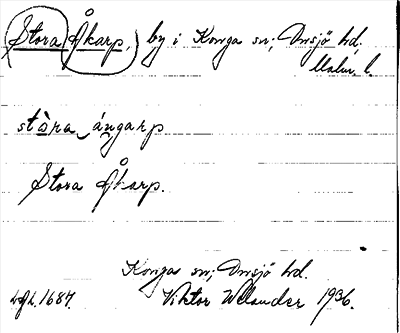 Stora Åkarp, by i Konga sn, Onsjö hd,
Malm. l.
stòra ångarp
Stora Åkarp.
Konga sn, Onsjö hd.
1687. Viktor Welander 1936.